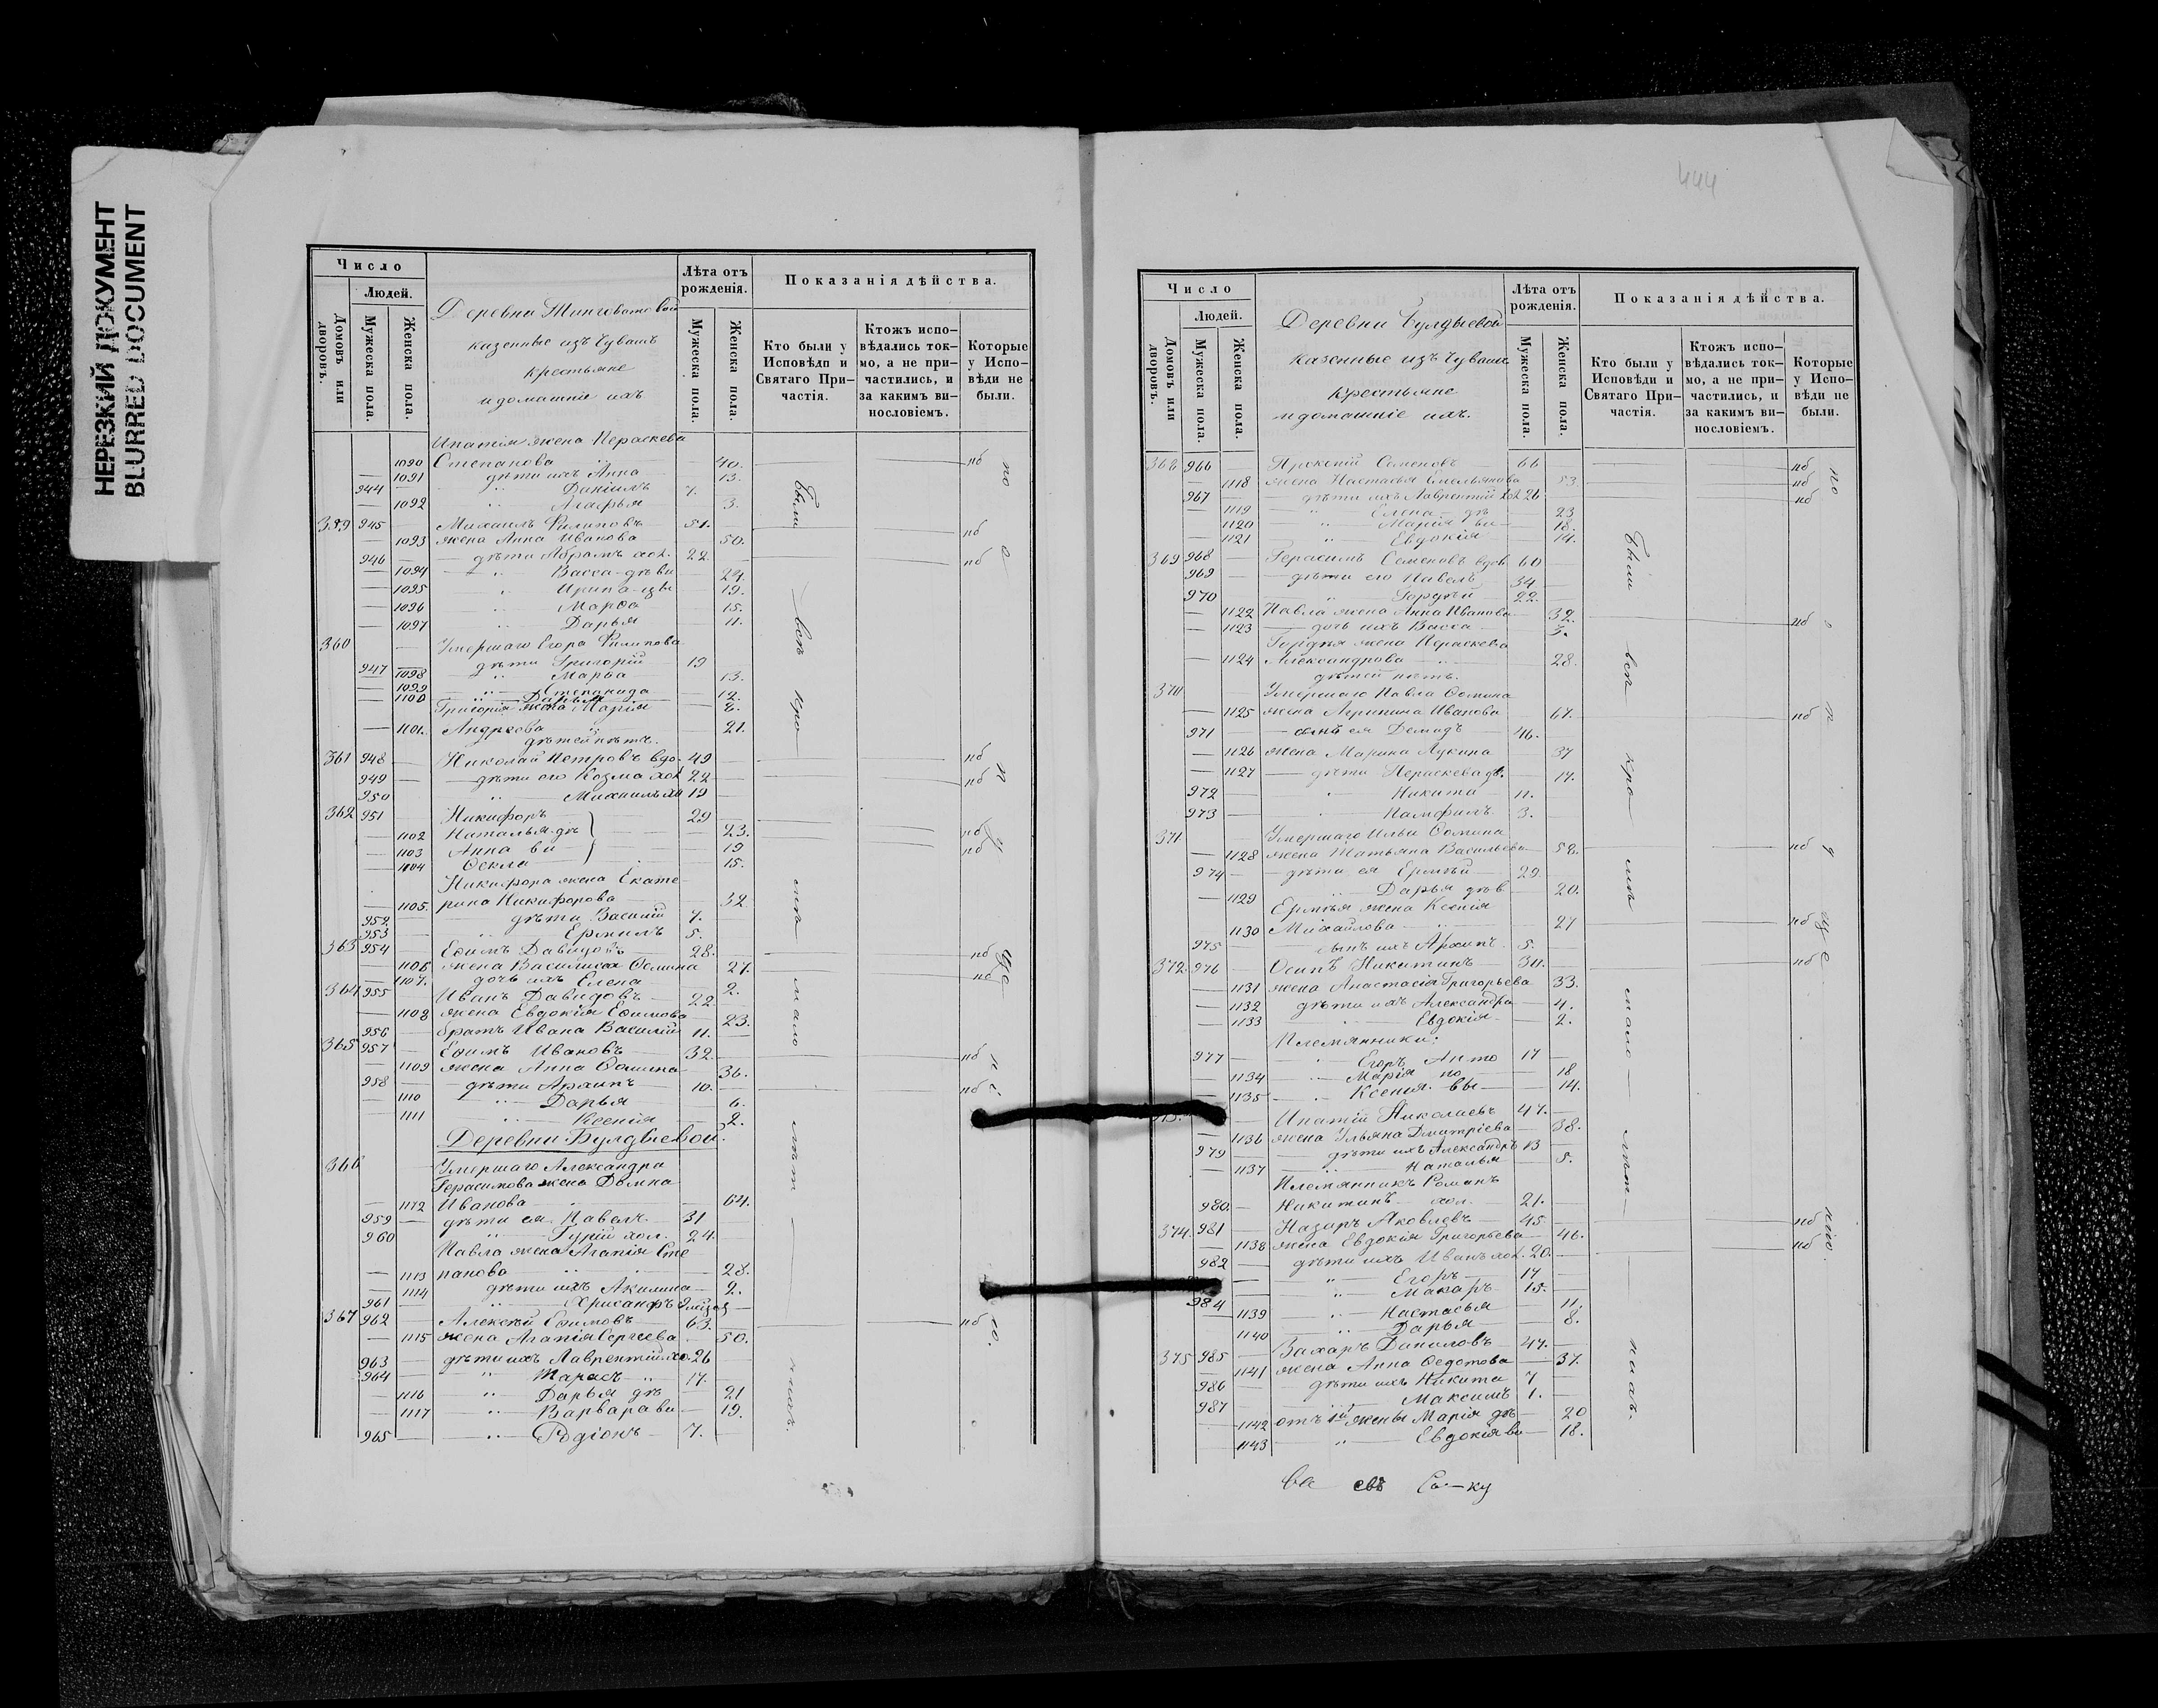 НЕРЕЗКИЙ ДОКУМЕНТ
BLURRED DOCUMENT
Число
Людей.
Домовъ или дворовъ.
Мужеска пола.
Женска пола.
Деревни
казенные изъ Чувашъ
крестьяне
и домашніе ихъ
Лѣта отъ рожденія.
Мужеска пола.
Женска пола.
Показанія дѣйства.
Кто были у Исповѣди и Святаго Причастія.
Ктожъ исповѣдались токмо, а не причастились, и за какимъ винословіемъ.
Которые у Исповѣди не были.
Ипатія жена Пераскева
1090 Степанова 40. нб
1091 дѣти ихъ Анна 13.
944 Даніилъ 7.
1092 Агафья 3.
359 945 Михаилъ Филиповъ 51.
1093 жена Анна Иванова 50. нб
946 дѣти Абрамъ хол. 22. нб
1094 Васса дѣви 24.
1095 Ирина цы 19.
1096 Марфа 15.
1097 Дарья 11.
360 Умершаго Егора Филипова
947 дѣти Григорій 19
1098 Марья 13.
1099 Степанида 12.
1100 Дарья 8.
Григорія жена Марія
1101. Андреева 21.
дѣтей нѣтъ.
361 948 Николай Петровъ вдо. 49 нб
949 дѣти его Козма хол 22 нб
950 Михаилъ хл 19
362 951 Никифоръ 29
1102 Наталья дѣ 23. нб
1103 Анна ви 19 нб
1104 Ѳекла 15.
Никифора жена Екате-
1105. рина Никифорова 32
952 дѣти Василій 7.
953 Ермилъ 5.
363 954 Ефимъ Давидовъ 28. нб
1106 жена Василиса Осипова 27. нб
1107. дочь ихъ Елена 2.
364 955 Иванъ Давидовъ 22
1108 жена Евдокія Ефимова 23.
956 братъ Ивана Василій 11.
365 957 Ефимъ Ивановъ 32. нб
1109 жена Анна Фомина 36.
958 дѣти Архипъ 10. нб
1110 Дарья 6.
1111 Ксенія 2.
Деревни Булдыевой.
366 Умершаго Александра
Герасимова жена Домна
1112 Иванова 64.
959 дѣти ея Павелъ 31
960 Гурій хол. 24.
Павла жена Агапія Сте
1113 панова 28.
1114 дѣти ихъ Акилина 2.
961 Хрисанфъ
367 962 Алексѣй Ефимовъ 63. нб
1115 жена Агапія Сергеева 50.
963 дѣти ихъ Лаврентій хо. 26
964 Тарасъ 17.
1116 Дарья дѣ 21
1117 Варвара ви 19.
965 Родіонъ 7.
Были всѣ кро
444
Число
Людей.
Домовъ или дворовъ.
Мужеска пола.
Женска пола.
Деревни Булдыевой
казенные изъ Чувашъ
крестьяне
и домашніе ихъ.
Лѣта отъ рожденія.
Мужеска пола.
Женска пола.
Показанія дѣйства.
Кто были у Исповѣди и Святаго Причастія.
Ктожъ исповѣдались токмо, а не причастились, и за какимъ винословіемъ.
Которые у Исповѣди не были.
368 966 Прокопій Семеновъ 66 нб
1118 жена Настасья Емельянова 53 нб
967 дѣти ихъ Лаврентій хол 26 нб
1119 Елена дѣ 23
1120 Марія ви 18.
1121 Евдокія 14.
369 968 Герасимъ Семеновъ вдов. 60
969 дѣти его Павелъ 34
970 Гордѣй 22.
1122 Павла жена Анна Иванова 32.
1123 дочь ихъ Васса 3. нб
Гордѣя жена Пераскева
1124 Александрова 28.
дѣтей нѣтъ.
370 Умершаго Павла Фомина
1125 жена Агрипина Иванова 67. нб
971 сынъ ея Демидъ 46.
1126 жена Марина Лукина 37
1127 дѣти Пераскева дѣ. 17.
972 Никита 11.
973 Памфилъ 3.
371 Умершаго Ильи Фомина
1128 жена Татьяна Васильева 58. нб
974 дѣти ея Ермѣй 29
1129 Дарья дѣв 20.
Ермѣя жена Ксенія
1130 Михайлова 27 нб
975 сынъ ихъ Архипъ 5.
372. 976 Осипъ Никитинъ 34. нб
1131 жена Анастасія Григорьева 33.
1132 дѣти ихъ Александра 4.
1133 Евдокія 2.
Племянники:
977 Егоръ Анто 17
1134 Марія но 18
1135 Ксенія вы 14.
Ипатій Николаевъ 47.
1136 жена Ульяна Дмитріева 38.
979 дѣти ихъ Александръ 13
1137 Наталья 5.
Племянникъ Романъ
980. Никитинъ хол. 21.
374. 981 Назаръ Яковлевъ 45 нб
1138 жена Евдокія Григорьева 46. нб
982 дѣти ихъ Иванъ хол. 20.
Егоръ 17
984 Макаръ 15.
1139 Настасья 11.
1140 Дарья 8.
375 985 Захаръ Даниловъ 47.
1141 жена Анна Ѳедотова 37.
986 дѣти ихъ Никита 7
987 Максимъ 1.
1142 отъ 1й жены Марія дѣ 20
1143 Евдокія ви 18.
Были всѣ кро мѣ мало лѣт